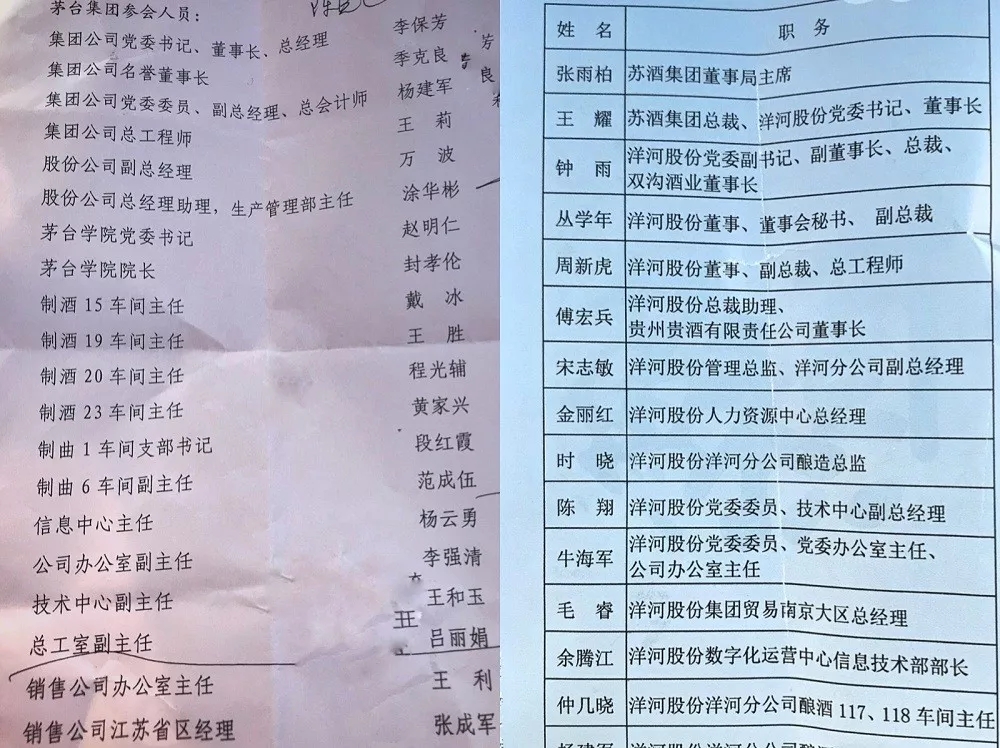 茅台集团参会人员：
集团公司党委书记、董事长、总经理 李保芳
集团公司名誉董事长 季克良
集团公司党委委员、副总经理、总会计师 杨建军
集团公司总工程师 王 莉
股份公司副总经理 万 波
股份公司总经理助理，生产管理部主任 涂华彬
茅台学院党委书记 赵明仁
茅台学院院长 封孝伦
制酒 15 车间主任 戴 冰
制酒 19 车间主任 王 胜
制酒 20 车间主任 程光辅
制酒 23 车间主任 黄家兴
制曲 1 车间支部书记 段红霞
制曲 6 车间副主任 范成伍
信息中心主任 杨云勇
公司办公室副主任 李强清
技术中心副主任 王和玉
总工室副主任 吕丽娟
销售公司办公室主任 王 利
销售公司江苏省区经理 张成军
芳
良
姓 名 职 务
张雨柏 苏酒集团董事局主席
王 耀 苏酒集团总裁、洋河股份党委书记、董事长
钟 雨 洋河股份党委副书记、副董事长、总裁、
双沟酒业董事长
丛学年 洋河股份董事、董事会秘书、 副总裁
周新虎 洋河股份董事、副总裁、总工程师
傅宏兵 洋河股份总裁助理、
贵州贵酒有限责任公司董事长
宋志敏 洋河股份管理总监、洋河分公司副总经理
金丽红 洋河股份人力资源中心总经理
时 晓 洋河股份洋河分公司酿造总监
陈 翔 洋河股份党委委员、技术中心副总经理
牛海军 洋河股份党委委员、党委办公室主任、
公司办公室主任
毛 睿 洋河股份集团贸易南京大区总经理
余腾江 洋河股份数字化运营中心信息技术部部长
仲几晓 洋河股份洋河分公司酿酒 117、118 车间主任